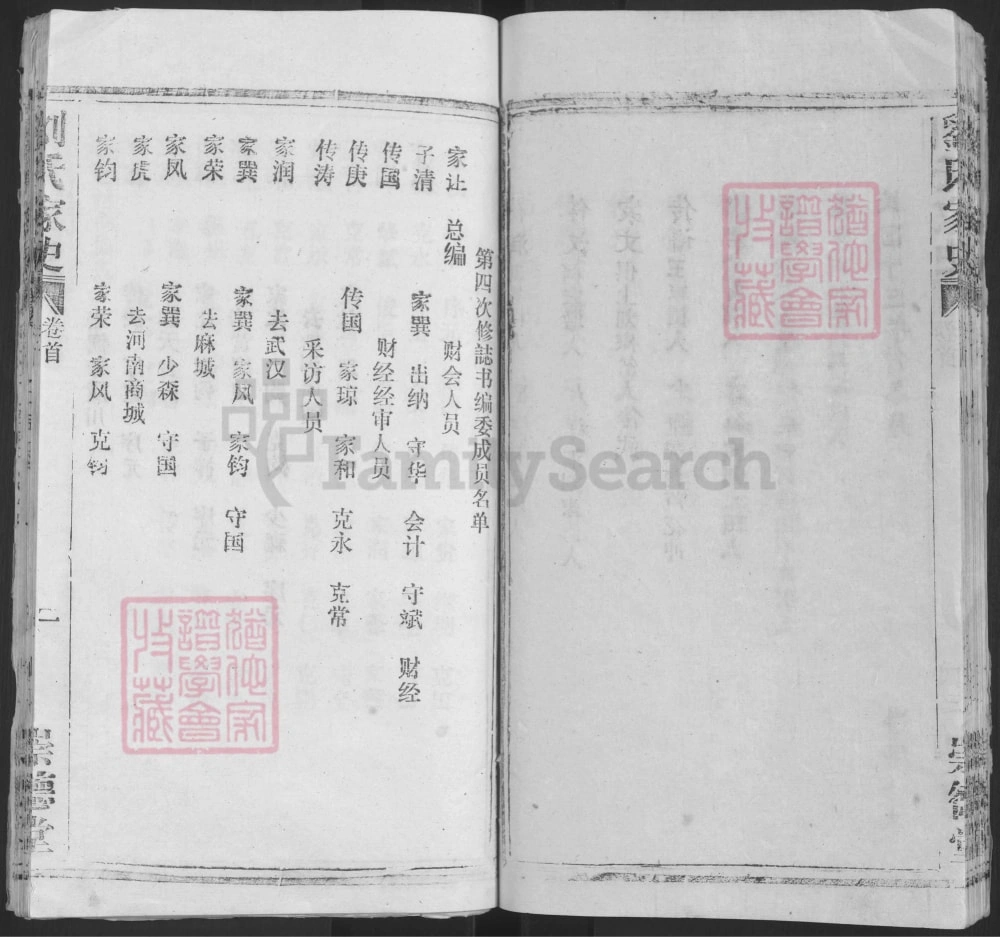 猶他家譜學會收藏
第四次修誌书编委成员名单
家让 总编 财会人员
子清 家巽 出纳 守华 会计 守斌 财经
传国 财经经审人员
传庚 传国 家琼 家和 克永 克常
传涛 采访人员
家润 去武汉
家巽 家巽 家风 家钧 守国
家荣 去麻城
家凤 家巽 少森 守国
家虎 去河南商城
家钧 家荣 家风 克钧
猶他家譜學會收藏
劉氏家史 卷首 二 崇德堂
FamilySearch